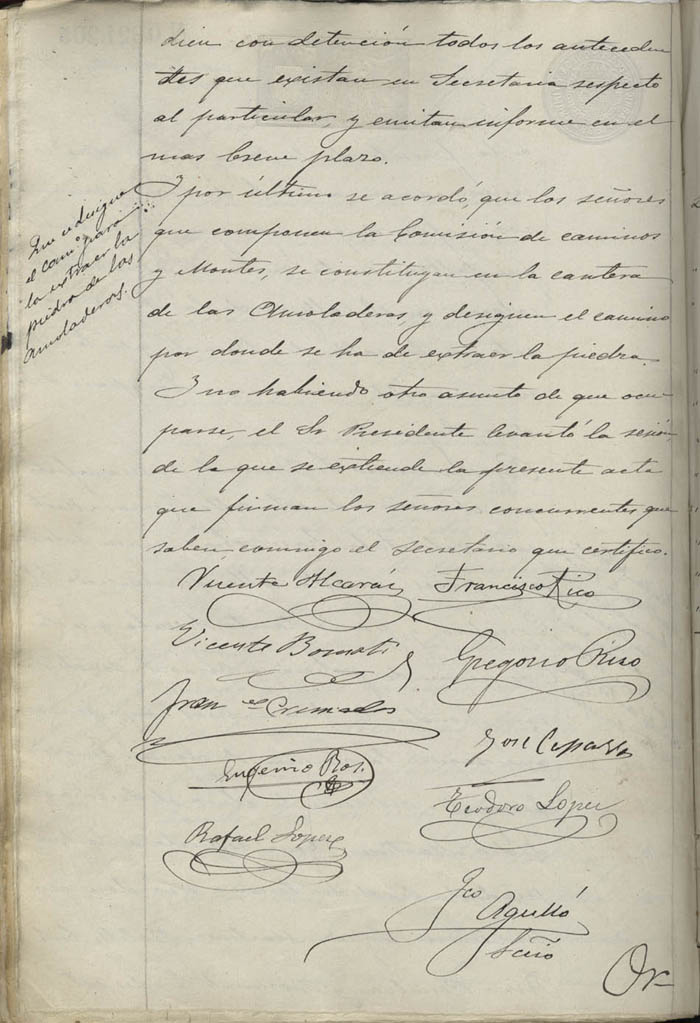 dien con detención todos los anteceden
tes que existan en Secretaria respecto
al particular, y emitan informe en el
mas breve plazo.
Y por último se acordó, que los señores
que componen la Comisión de caminos
y Montes, se constituyan en la cantera
de las Amoladeras, y designen el camino
por donde se ha de extraer la piedra.
Y no habiendo otro asunto de que ocu
parse, el Sr Presidente levantó la sesión
de la que se extiende la presente acta
que firman los señores concurrentes que
saben conmigo el Secretario que certifico.
Que se designe
el camº para
la extraer la
piedra de las
Amoladeras.
Vicente Alcaráz
Francisco Rico
Vicente Bomati
Gregorio Rizo
Franco Cremades
José
Eugenio Ros.
Teodoro Lopez
Rafael Lopez
Fco Agulló
Srio
Or-